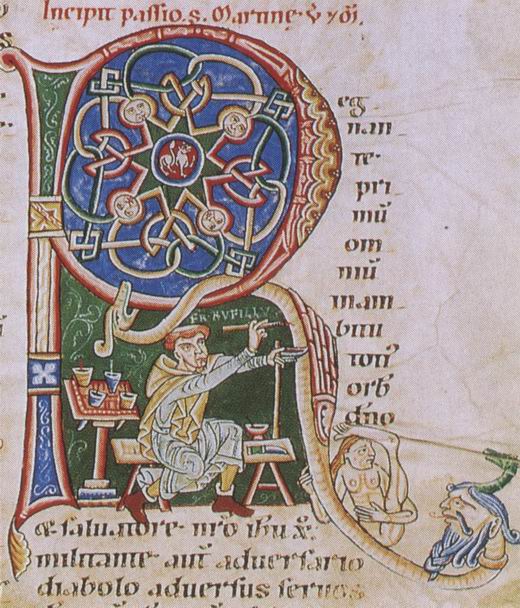 Incipit passio. s. Martine·
R
eg
nan
te·
pri
mū
om
niū
bitu
orb
dño
FR·RVFILLVS
& saluatore nro ihu x̄.
militante aut aduersario
diabolo aduersus seruos